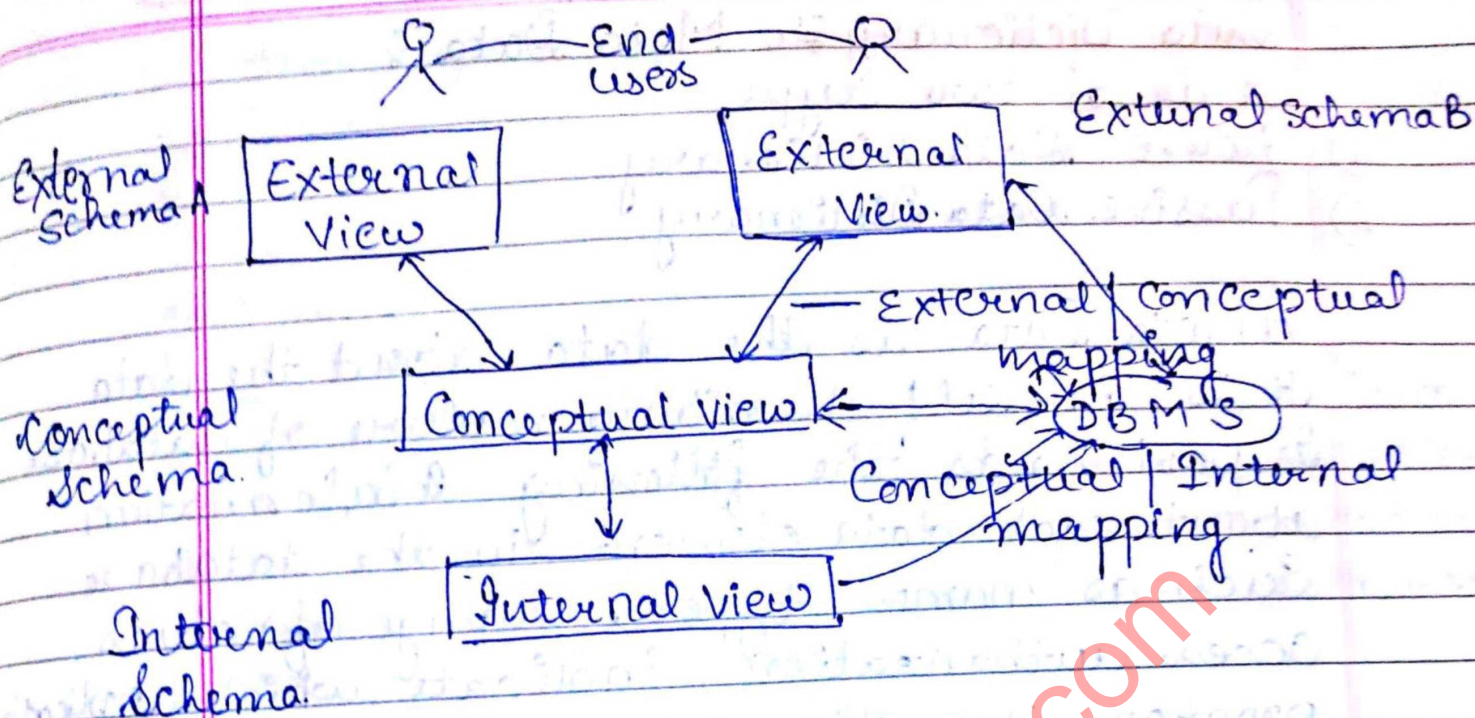 End
users
External
Schema A
External
View
External
View.
External Schema B
External | Conceptual
mapping
Conceptual
Schema.
Conceptual View
DBMS
Conceptual | Internal
mapping
Internal
Schema.
Internal View
com